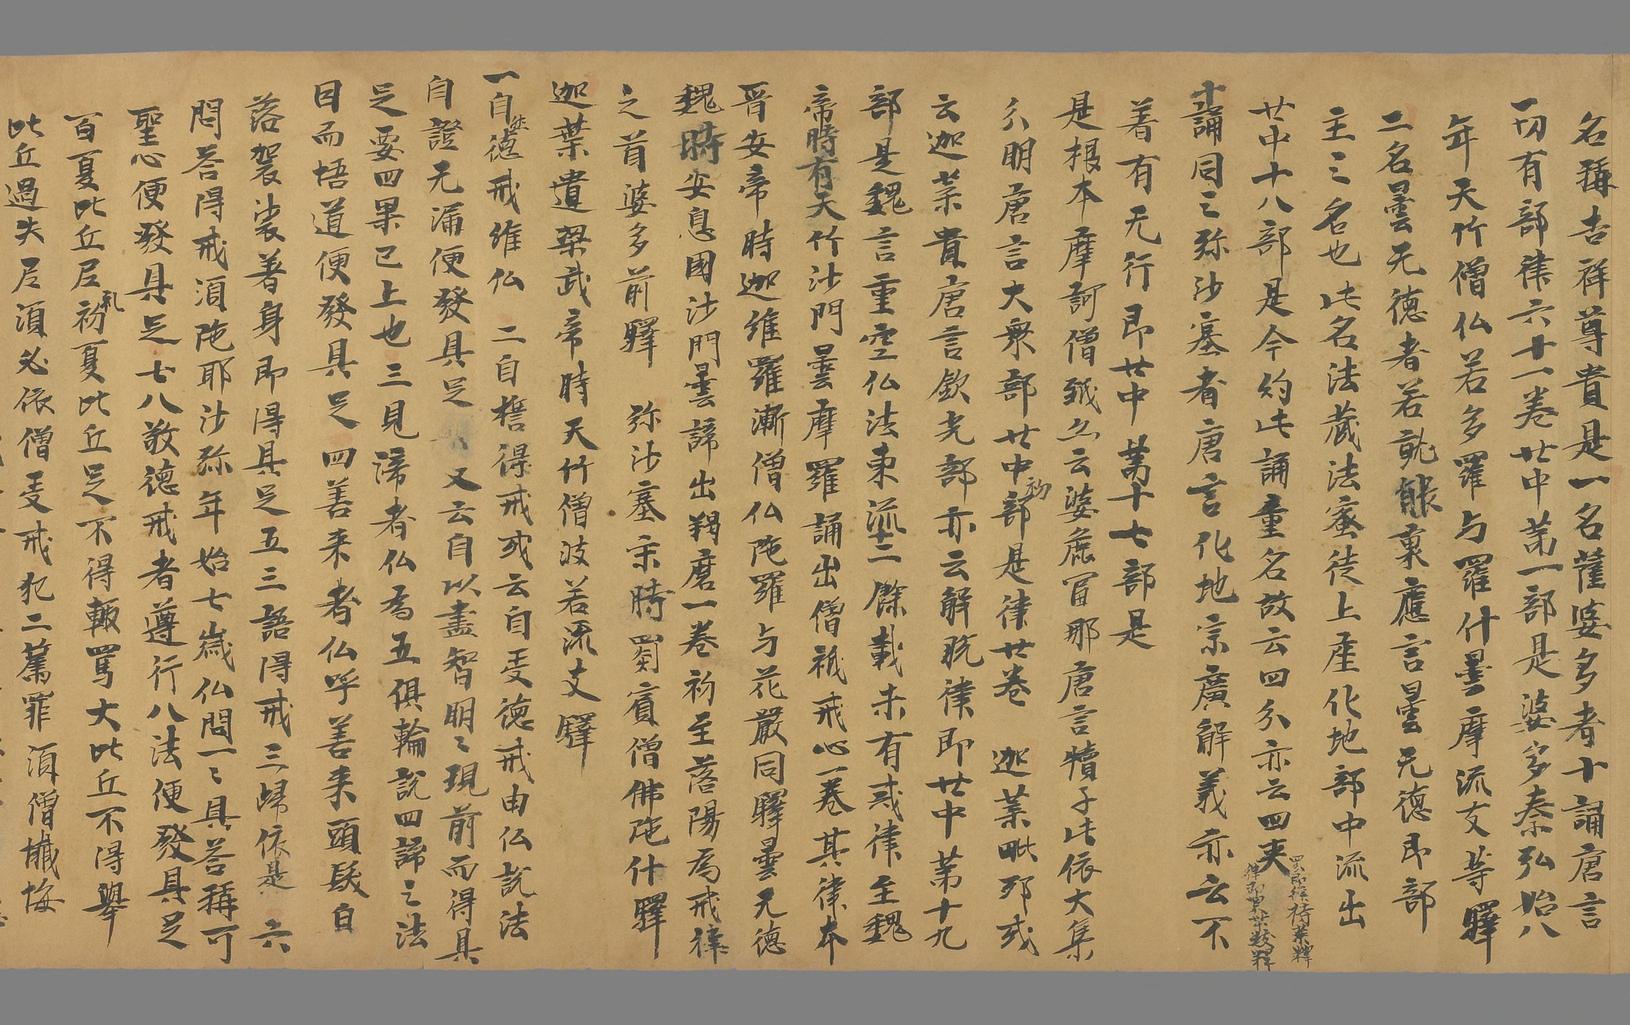 名稱吉祥尊貴是一名薩婆多者十誦唐言
一切有部律六十一卷廿中第一部是婆多秦弘始八
年天竹僧仏若多羅与羅什曇摩流支等驛
二名曇无德者若說能稟應言曇无德即部
主之名也此名法藏法蜜徒上座化地部中流出
廿中十八部是今約此誦重名故云四分亦云四夾
十誦同之弥沙塞者唐言化地宗廣解義亦云不
着有无行即廿中第十七部是
是根本摩訶僧衹亦云婆麁冨那唐言犢子此依大集
分明唐言大衆部廿中初部是律卌卷 迦葉毗耶或
云迦葉貴唐言飲光部亦云解脫律即廿中第十九
部是魏言重空仏法東流十二餘載未有戒律至魏
帝時有天竹沙門曇摩羅誦出僧祇戒心一卷其律本
晋安帝時迦維羅漸僧仏陁羅与花嚴同驛曇无德
魏時安息國沙門曇諦出羯磨一卷初至落陽為戒律
之首婆多前驛 弥沙塞宋時罽賓僧佛陁什驛
迦葉遺梁武帝時天竹僧波若流支驛
一自然德戒維仏 二自誓得戒或云自受德戒由仏說法
自證无漏便發具足 又云自以盡智明々現前而得具
足要四果已上也三見諦者仏為五俱輪說四諦之法
因而悟道便發具足四善来者仏呼善来頭髮自
落袈裟著身即得具足五三語得戒三歸依是 六
問荅得戒湏陁耶沙弥年始七歲仏問一々具荅稱可
聖心便發具足七八敬德戒者遵行八法便發具足
百夏比丘尼礼初夏比丘足不得輙罵大比丘不得舉
比丘過失尼湏必依僧受戒犯二篇罪湏僧懺悔